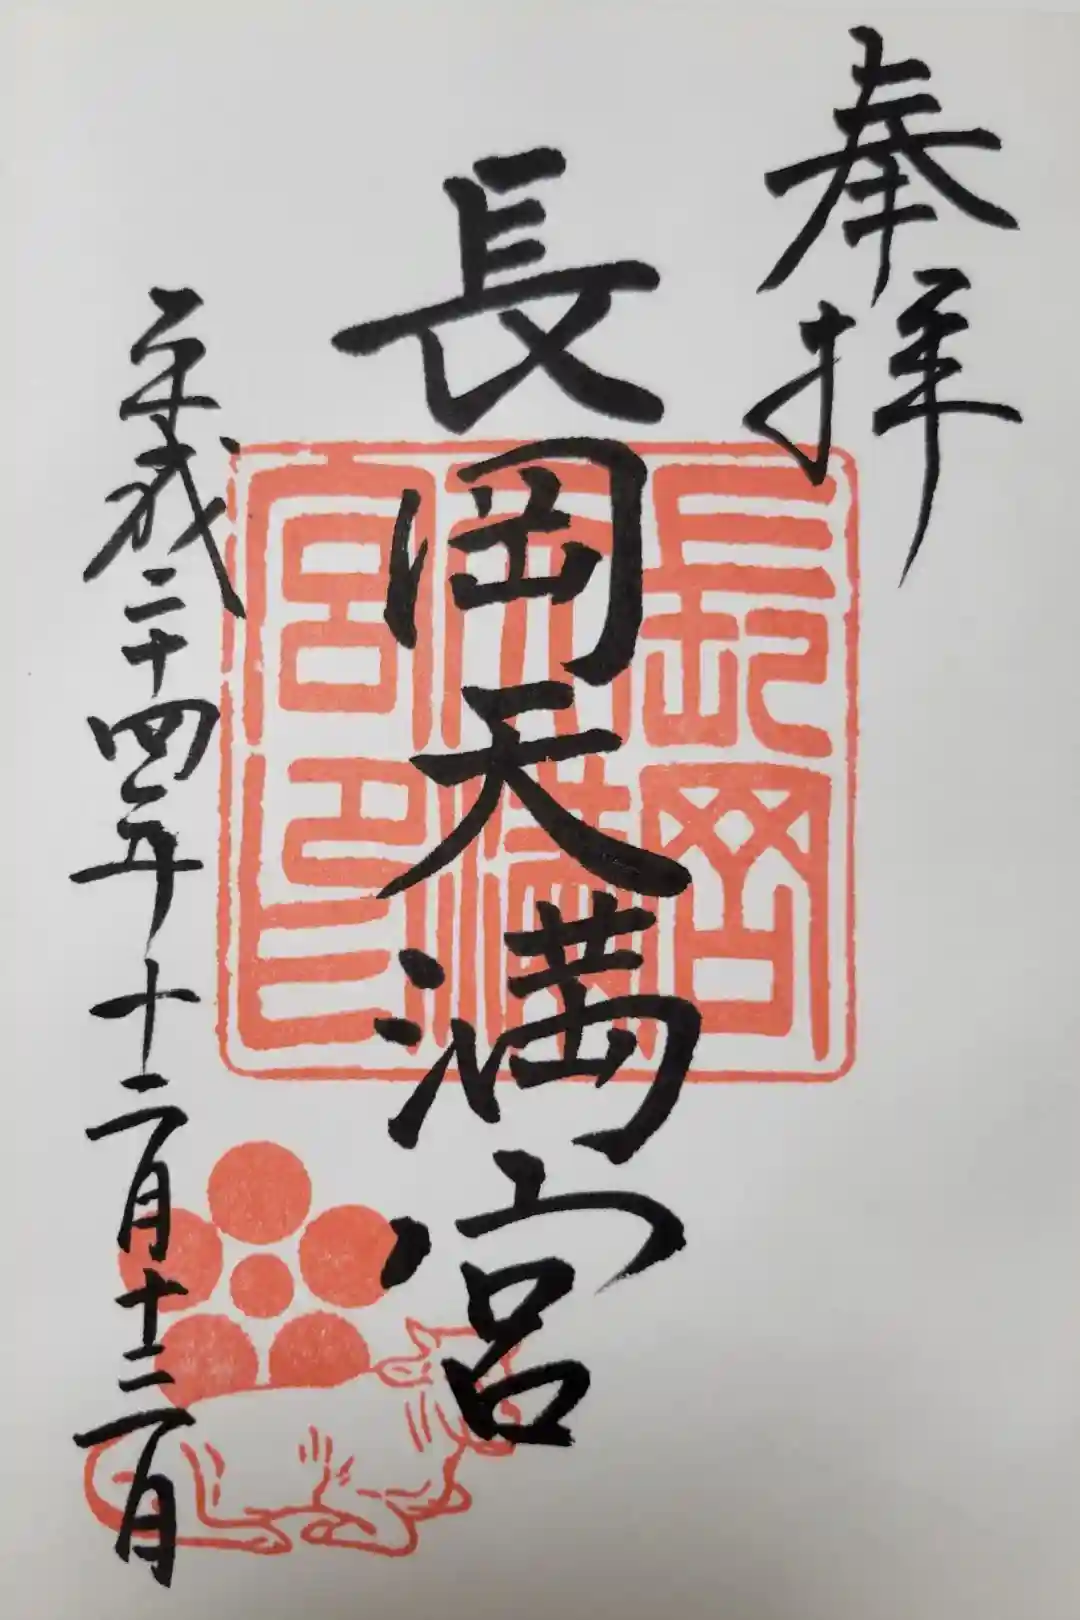 奉拝
長岡天満宮
平成二十四年十二月十二月
長岡
天満
宮印